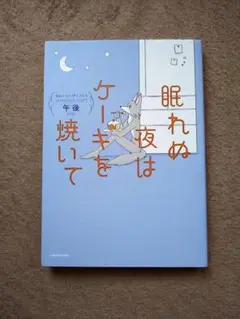 眠れぬ
夜は
ケーキを
焼いて
午後